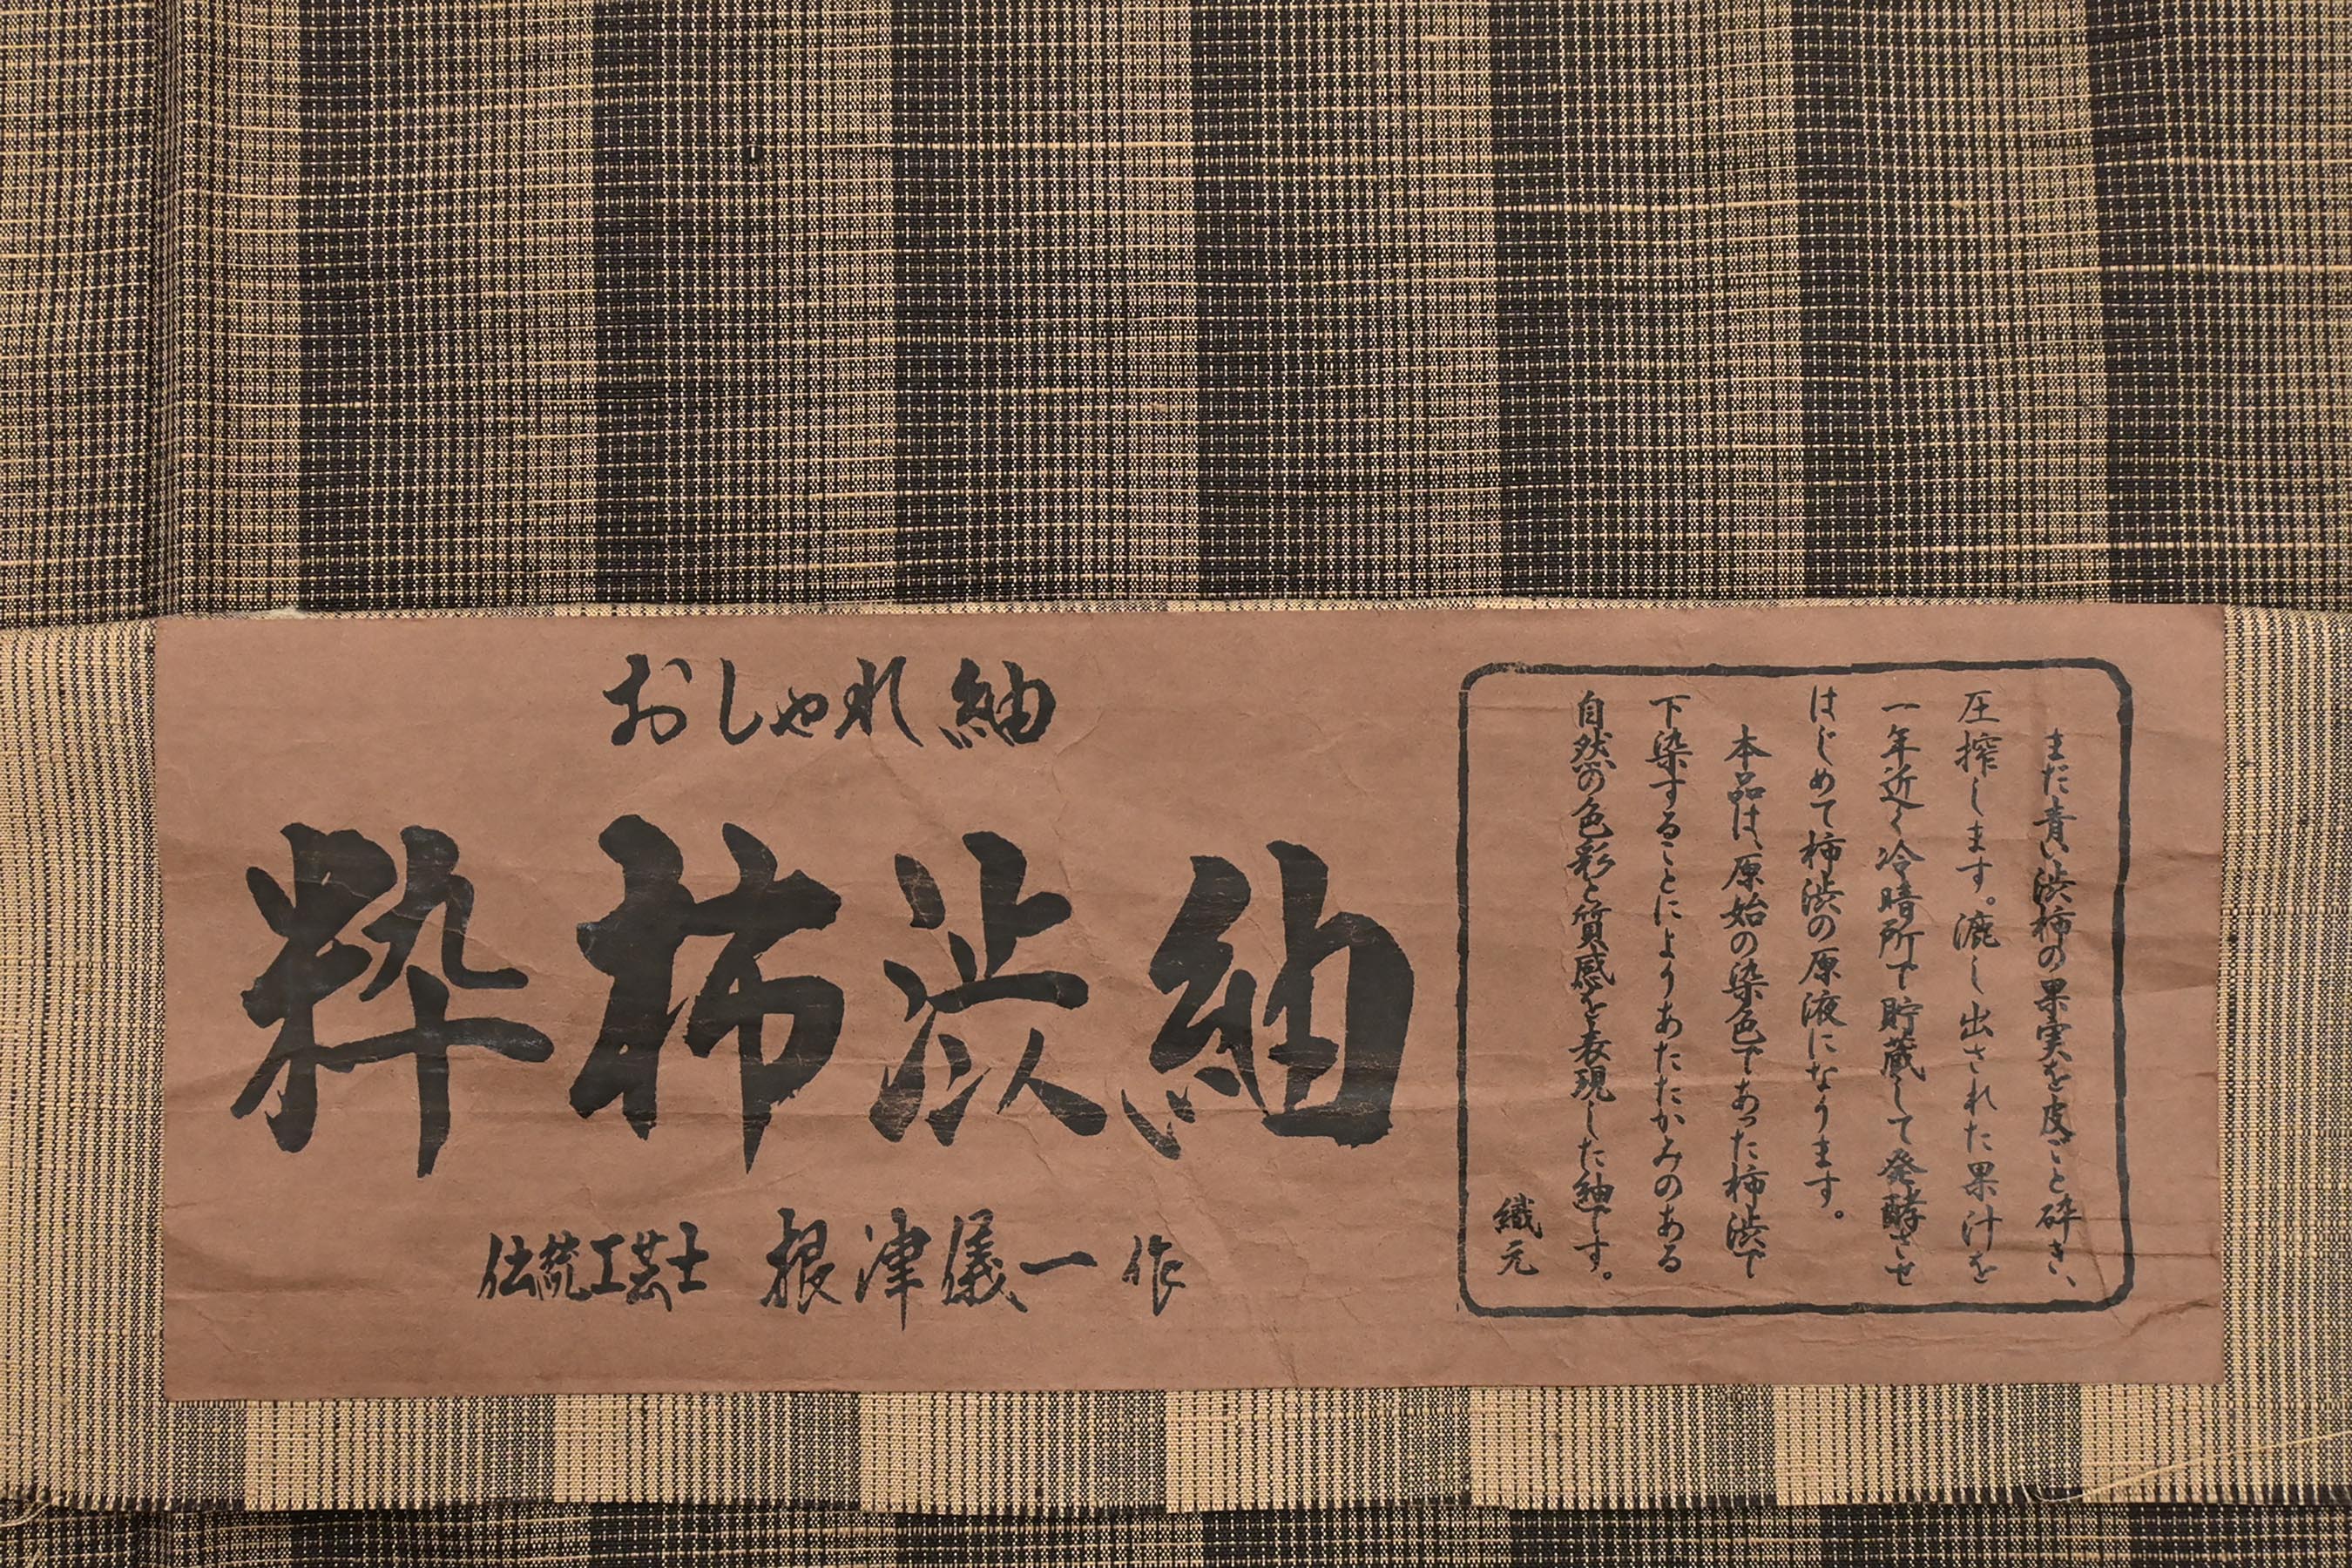 おしゃれ紬
粋柿渋紬
伝統工芸士 根津儀一 作
まだ青い渋柿の果実を皮ごと砕き、
圧搾します。漉し出された果汁を
一年近く冷暗所で貯蔵して発酵させ
はじめて柿渋の原液になります。
本品は、原始の染色であった柿渋で
下染することによりあたたかみのある
自然の色彩と質感を表現した紬です。
織元